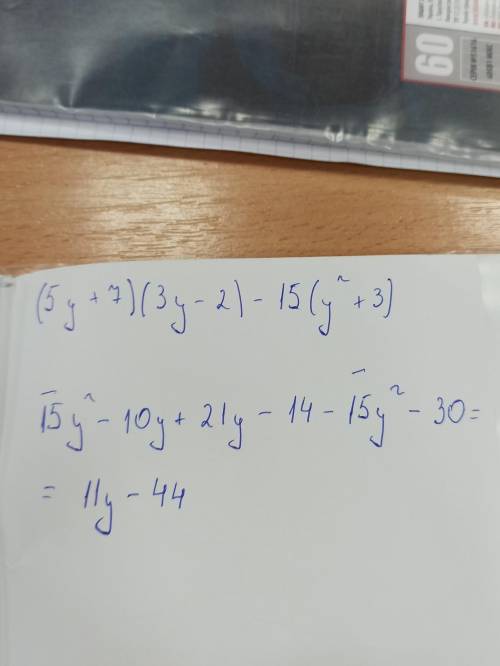 60
(5y + 7)(3y - 2) - 15(y² + 3)
15y² - 10y + 21y - 14 - 15y² - 30 =
= 11y - 44